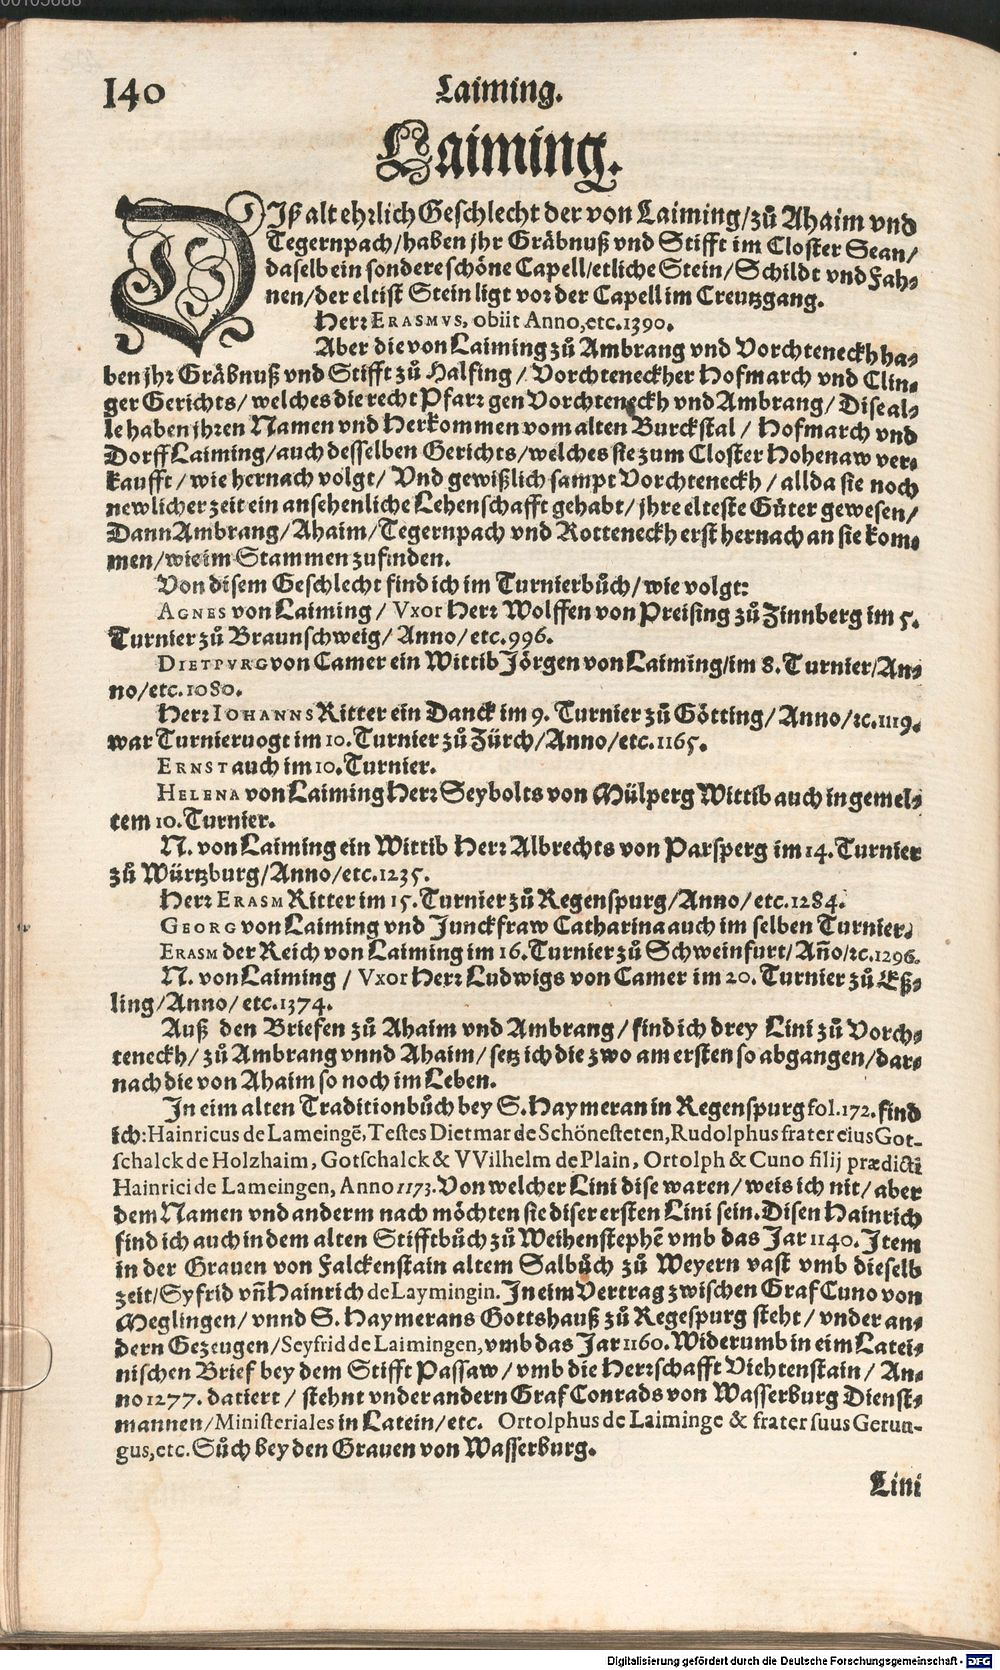 140
Laiming.
Laiming.
DIß alt ehrlich Geschlecht der von Laiming/zů Ahaim vnd
Tegernpach/haben jhr Gräbnuß vnd Stifft im Closter Sean/
daselb ein sondere schöne Capell/etliche Stein/Schildt vnd Fah⸗
nen/der eltist Stein ligt vor der Capell im Creutzgang.
Herr ERASMVS, obiit Anno, etc. 1390.
Aber die von Laiming zů Ambrang vnd Vorchteneckh ha⸗
ben jhr Gräbnuß vnd Stifft zů Halfing / Vorchteneckher Hofmarch vnd Clin⸗
ger Gerichts/ welches die recht Pfarr gen Vorchteneckh vnd Ambrang/ Dise al⸗
le haben jhren Namen vnd Herkommen vom alten Burckstal / Hofmarch vnd
Dorff Laiming/auch desselben Gerichts/welches sie zum Closter Hohenaw ver⸗
kaufft / wie hernach volgt/ Vnd gewißlich sampt Vorchteneckh / allda sie noch
newlicher zeit ein ansehenliche Lehenschafft gehabt/ jhre elteste Güter gewesen/
Dann Ambrang/Ahaim/Tegernpach vnd Rotteneckh erst hernach an sie kom⸗
men/wie im Stammen zufinden.
Von disem Geschlecht find ich im Turnierbůch/wie volgt:
AGNES von Laiming / Vxor Herr Wolffen von Preising zů Zinnberg im 5.
Turnier zů Braunschweig/ Anno/ etc. 996.
DIETPVRG von Camer ein Wittib Jörgen von Laiming/im 8. Turnier/An⸗
no/etc. 1080.
Herr IOHANNS Ritter ein Danck im 9. Turnier zů Götting/ Anno/ ꝛc. 1119.
war Turniervogt im 10. Turnier zů Zürch/Anno/etc. 1165.
ERNST auch im 10. Turnier.
HELENA von Laiming Herr Seybolts von Mülperg Wittib auch in gemel⸗
tem 10. Turnier.
N. von Laiming ein Wittib Herr Albrechts von Parsperg im 14. Turnier
zů Würtzburg/Anno/etc. 1235.
Herr ERASM Ritter im 15. Turnier zů Regenspurg/Anno/ etc. 1284.
GEORG von Laiming vnd Junckfraw Catharina auch im selben Turnier.
ERASM der Reich von Laiming im 16. Turnier zů Schweinfurt/Añо/ꝛc. 1296.
N. von Laiming / Vxor Herr Ludwigs von Camer im 20. Turnier zů Eß⸗
ling/Anno/ etc. 1374.
Auß den Briefen zů Ahaim vnd Ambrang/ find ich drey Lini zů Vorch⸗
teneckh/ zů Ambrang vnnd Ahaim/ setz ich die zwo am ersten so abgangen/dar⸗
nach die von Ahaim so noch im Leben.
In eim alten Traditionbůch bey S. Haymeran in Regenspurg fol. 172. find
ich: Hainricus de Lameingẽ, Testes Dietmar de Schönesteten, Rudolphus frater eius Got-
schalck de Holzhaim, Gotschalck & VVilhelm de Plain, Ortolph & Cuno filij prædicti
Hainrici de Lameingen, Anno 1173. Von welcher Lini dise waren/ weis ich nit/ aber
dem Namen vnd anderm nach möchten sie diser ersten Lini sein. Disen Hainrich
find ich auch in dem alten Stifftbůch zů Weihenstephẽ vmb das Jar 1140. Item
in der Grauen von Falckenstain altem Salbůch zů Weyern vast vmb dieselb
zeit/Syfrid vñ Hainrich de Laymingin. In eim Vertrag zwischen Graf Cuno von
Meglingen/ vnnd S. Haymerans Gottshauß zů Regespurg steht/ vnder an⸗
dern Gezeugen/Seyfrid de Laimingen, vmb das Jar 1160. Widerumb in eim Latei⸗
nischen Brief bey dem Stifft Passaw / vmb die Herrschafft Viehtenstain / An⸗
no 1277. datiert / stehnt vnder andern Graf Conrads von Wasserburg Dienst⸗
mannen/Ministeriales in Latein/etc. Ortolphus de Laiminge & frater suus Gerun-
gus, etc. Sůch bey den Grauen von Wasserburg.
Lini
Digitalisierung gefördert durch die Deutsche Forschungsgemeinschaft - DFG